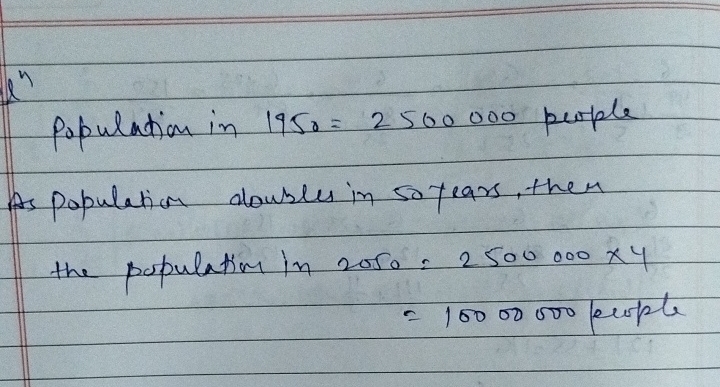 lⁿ
Population in 1950 = 2500 000 people
As population doubles in 50 years, then
the population in 2050 = 2500 000 x 4
= 100 00 000 people